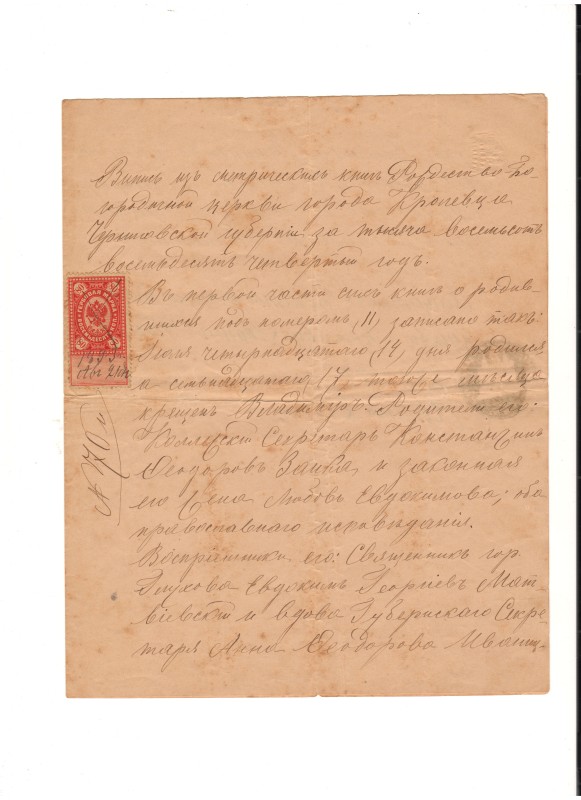 Выпись изъ метрическихъ книгъ Рождество-Бо-
городичной церкви города Кролевца
Черниговской губерніи за тысяча восемьсотъ
восемьдесятъ четвертый годъ.
Въ первой части сихъ книгъ о родив-
шихся подъ номеромъ (11) записано такъ:
четырнадцатаго (14) дня родился
а семьнадцатаго (17) того же месяца
крещенъ Владиміръ. Родители его:
Коллежскій Секретарь Константинъ
Феодоровъ Заика и законная
его жена Любовь Евдокимова; оба
православнаго исповѣданія.
Воспріемники его: Священникъ гор.
Глухова Евдокимъ Георгіевъ Мат
віевскій и вдова Губернскаго Секре-
таря Анна Феодорова Иваниц-
ГЕРБОВАЯ МАРКА
№ 70